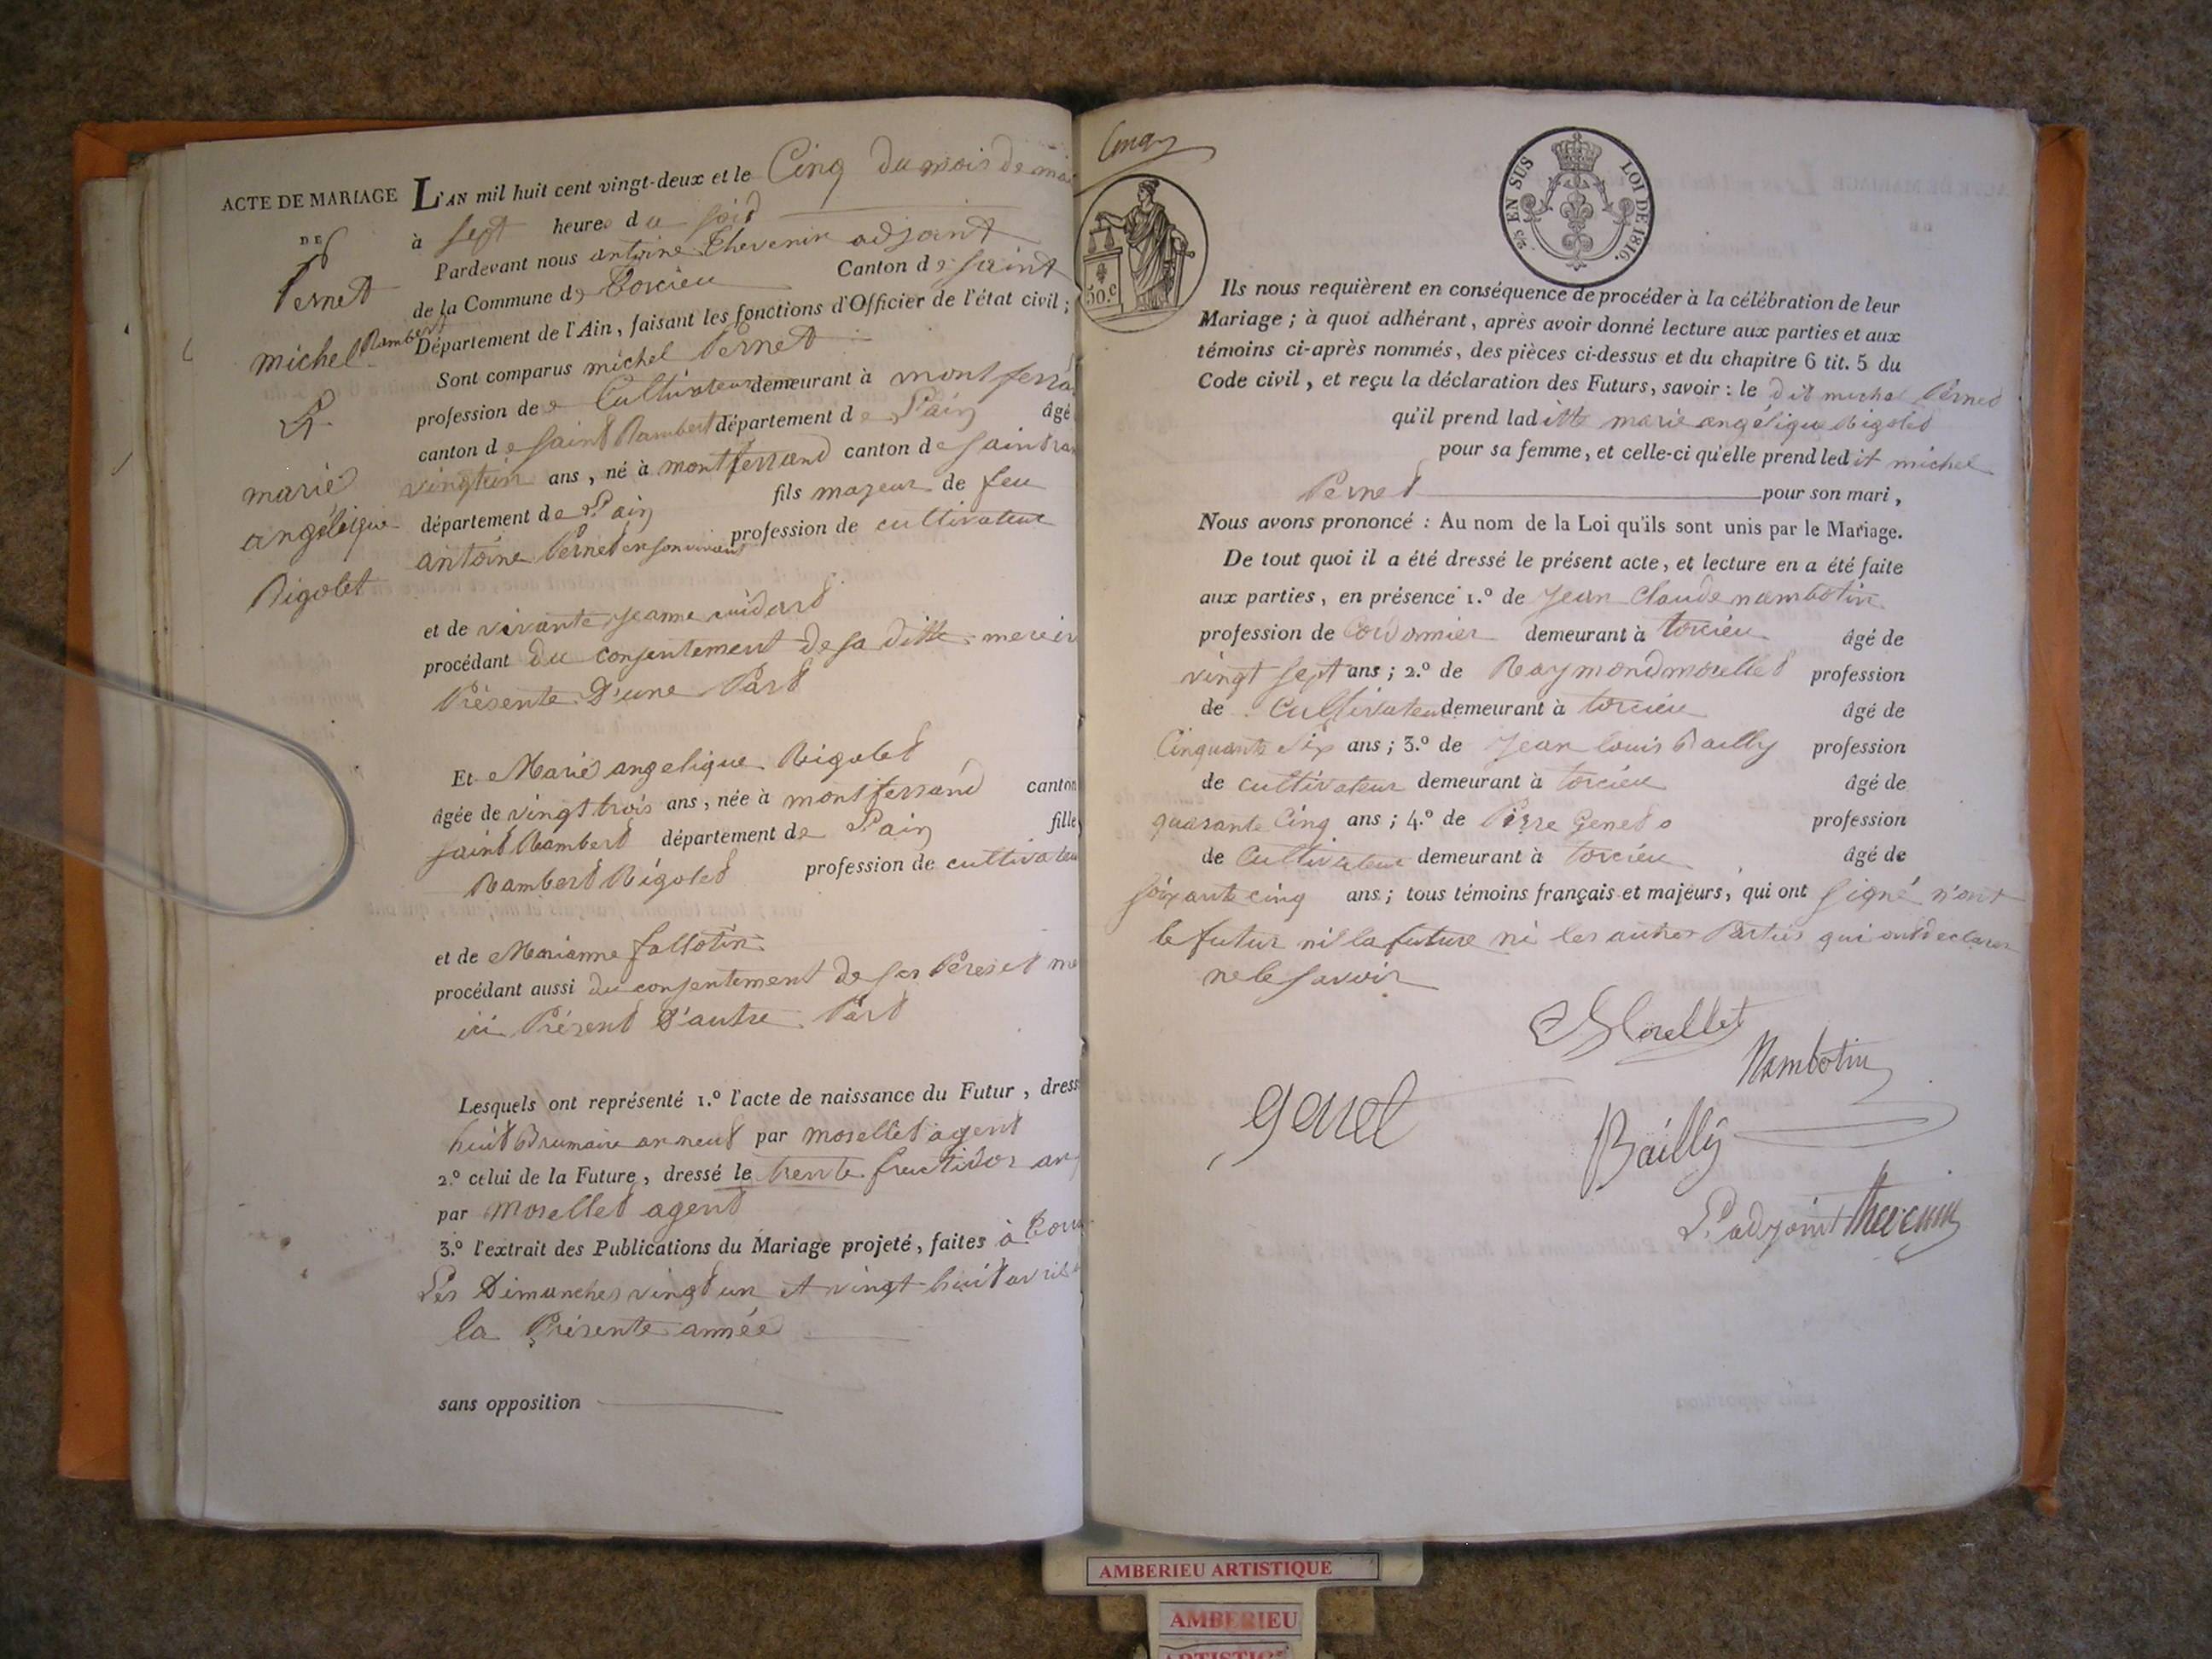 ACTE DE MARIAGE
DE
Pernet
michel
&
marie
angélique
Rigolet
L'AN mil huit cent vingt-deux et le Cinq du mois de mai
à sept heures du soir
Pardevant nous antoine Thevenin adjoint
de la Commune de Torcieu Canton de saint
Rambert Département de l'Ain, faisant les fonctions d'Officier de l'état civil;
Sont comparus michel Pernet
profession de Cultivateur demeurant à montferrand
canton de saint Rambert département de L'ain âgé
vingtun ans, né à montferrand canton de saint ram
département de L'ain fils majeur de feu
antoine Pernet en son vivant profession de cultivateur
et de vivante jeanne
procédant du consentement de sa ditte mere ici
Présente D'une Part
Et Marie angelique Rigolet
âgée de vingt trois ans, née à montferrand canton
saint Rambert département de L'ain fille
Rambert Rigolet profession de cultivateur
et de Marianne
procédant aussi du consentement de ses Père et me
ici Présent D'autre Part
Lesquels ont représenté 1.º l'acte de naissance du Futur, dress
huit Brumaire an neuf par morellet agent
2.º celui de la Future, dressé le trente fructidor an
par morellet agent
3.º l'extrait des Publications du Mariage projeté, faites à Torc
Les Dimanches vingt un et vingt huit avril
la Présente année
sans opposition
Cinq
50.c
25 EN SUS LOI DE 1816.
Ils nous requièrent en conséquence de procéder à la célébration de leur
Mariage; à quoi adhérant, après avoir donné lecture aux parties et aux
témoins ci-après nommés, des pièces ci-dessus et du chapitre 6 tit. 5 du
Code civil, et reçu la déclaration des Futurs, savoir: le dit michel Pernet
qu'il prend laditte marie angélique Rigolet
pour sa femme, et celle-ci qu'elle prend ledit michel
Pernet pour son mari,
Nous avons prononcé: Au nom de la Loi qu'ils sont unis par le Mariage.
De tout quoi il a été dressé le présent acte, et lecture en a été faite
aux parties, en présence 1.º de jean Claude nambotin
profession de Cordonnier demeurant à torcieu âgé de
vingt sept ans; 2.º de Raymond morellet profession
de Cultivateur demeurant à torcieu âgé de
Cinquante Six ans; 3.º de jean louis Bailly profession
de cultivateur demeurant à torcieu âgé de
quarante Cinq ans; 4.º de Pierre Genet profession
de Cultivateur demeurant à torcieu âgé de
soixante cinq ans; tous témoins français et majeurs, qui ont signé n'ont
le futur ni la future ni les autres Parties qui ont declarer
ne le savoir
Morellet
Nambotin
genet
Bailly
L'adjoint Thevenin
AMBERIEU ARTISTIQUE
AMBERIEU
ARTISTIQUE